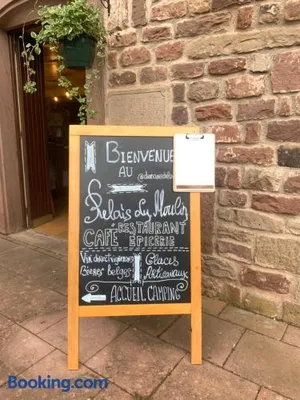 BIENVENUE
AU
Relais du Moulin
RESTAURANT
CAFÉ EPICERIE
Vin des vignerons
Glaces
Bières belges
Artisanaux
ACCUEIL CAMPING
Booking.com